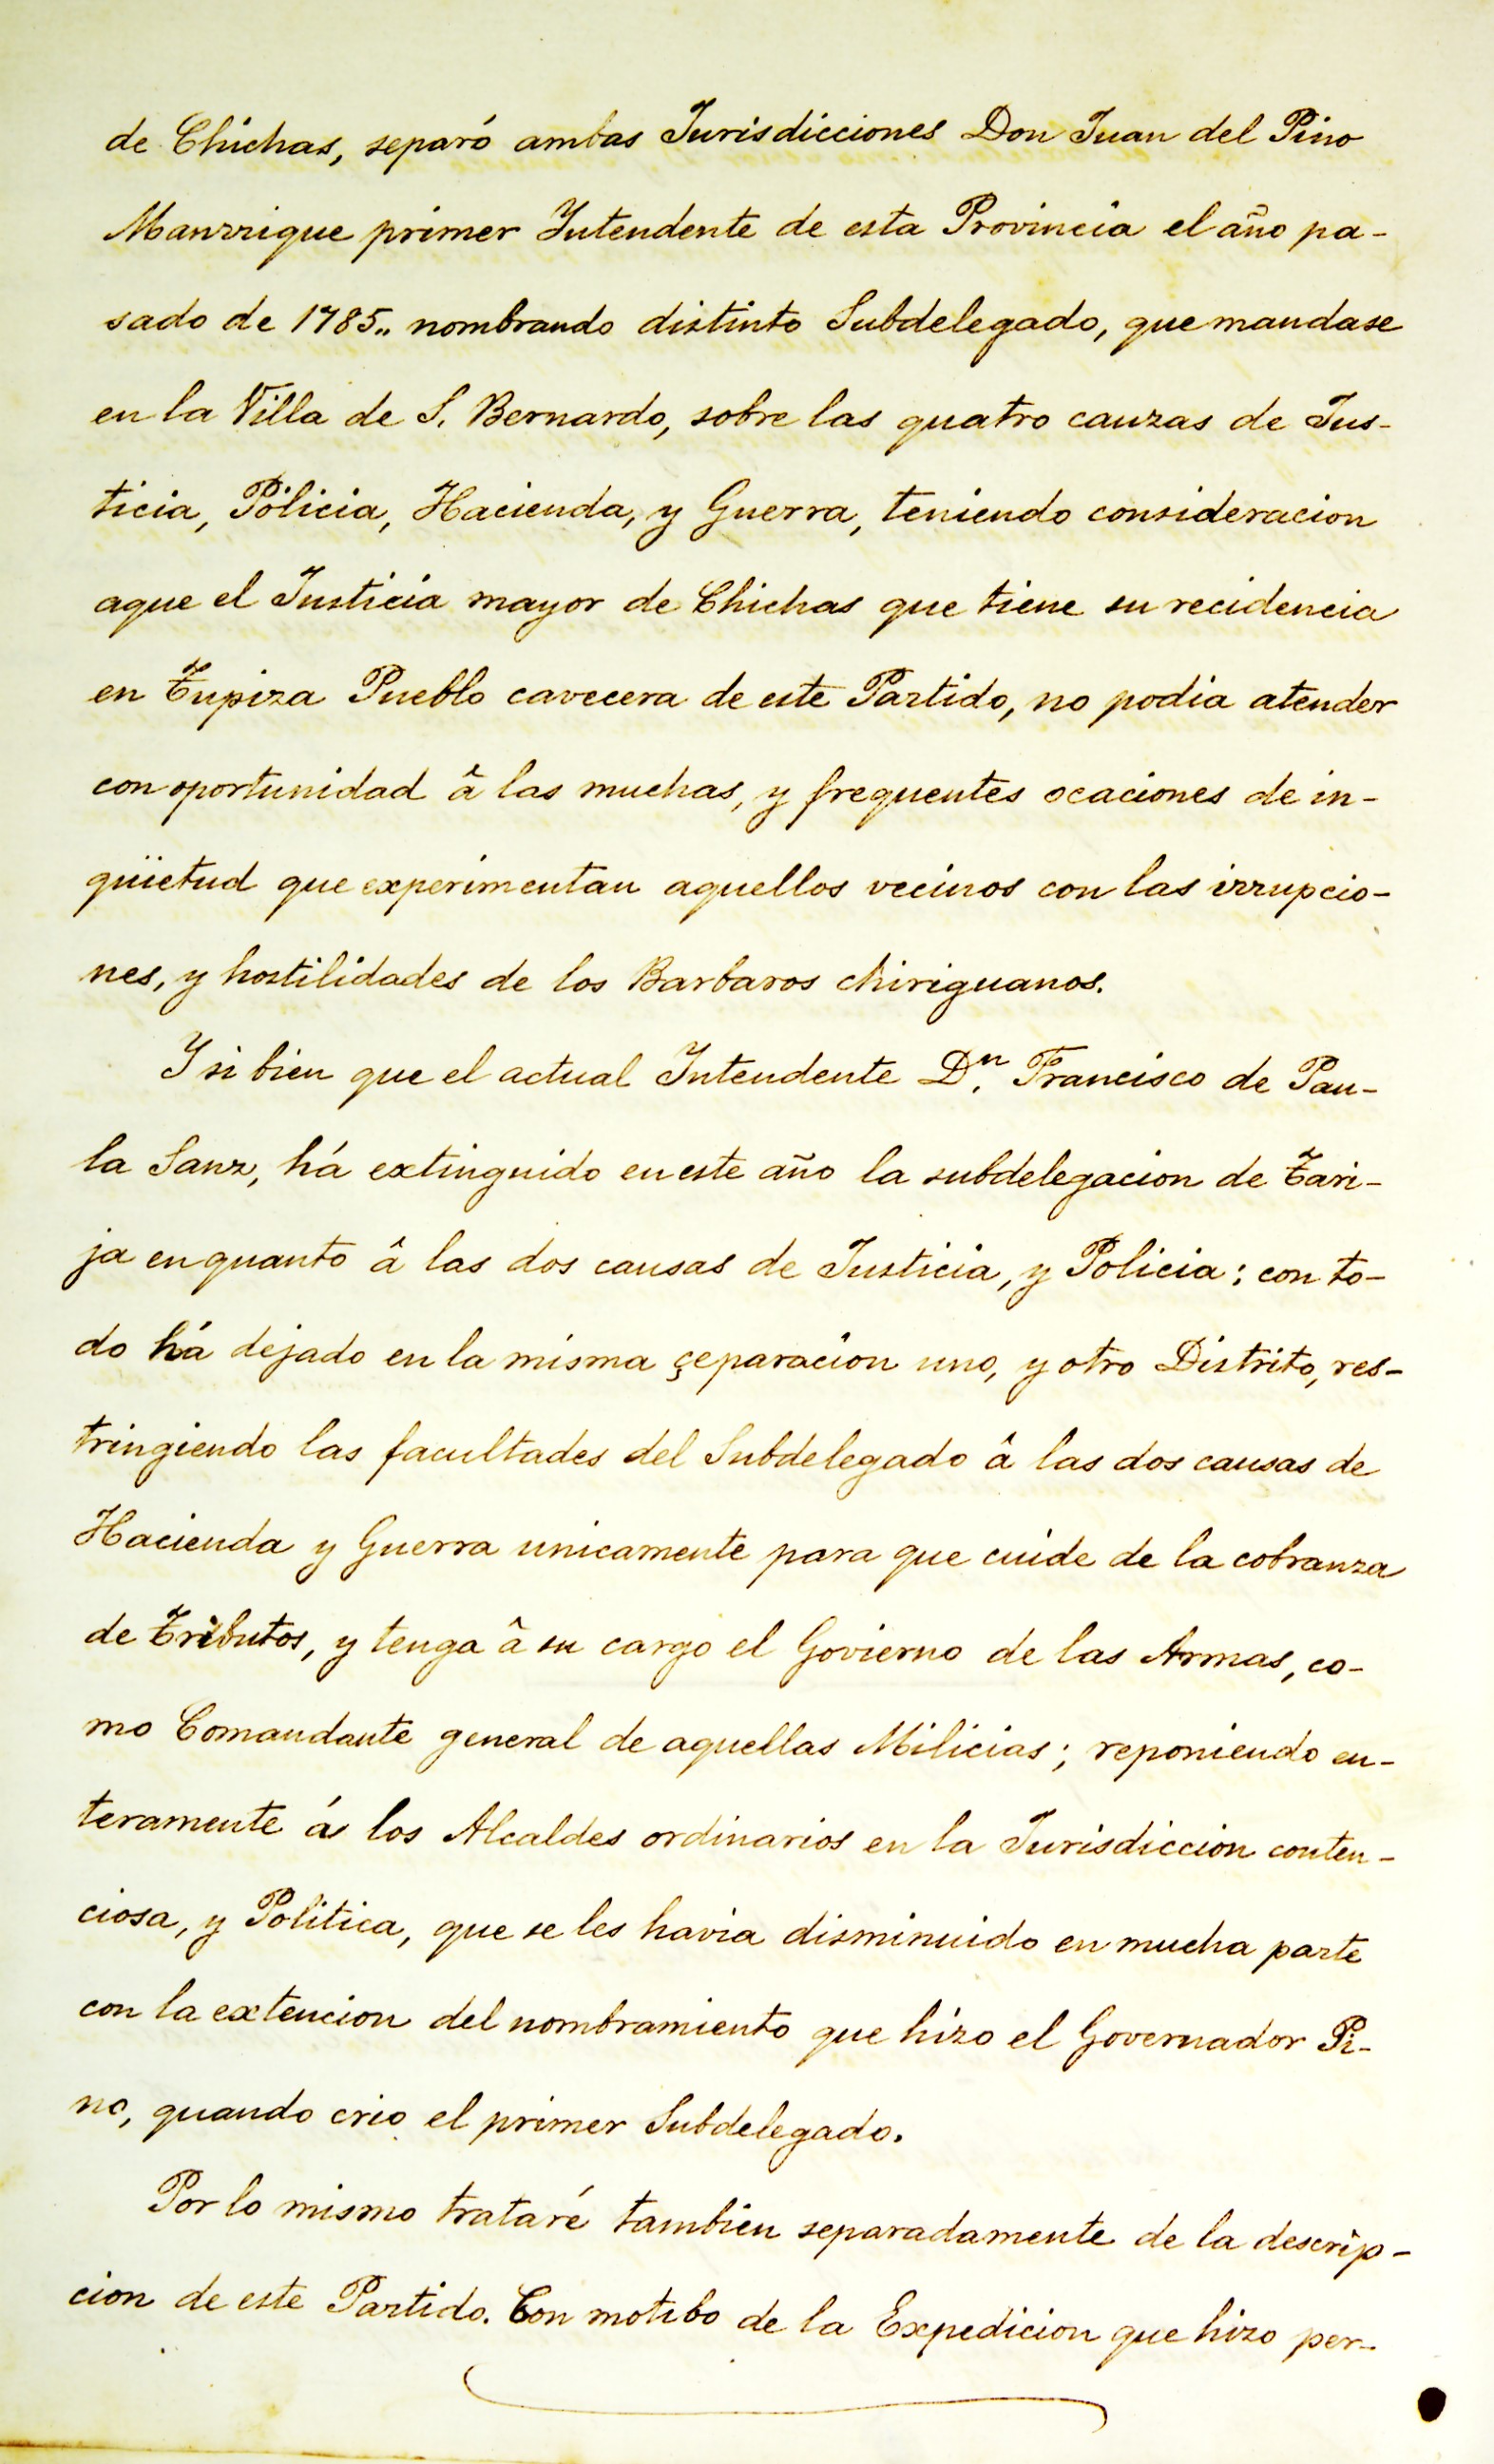 de Chichas, separó ambas Jurisdicciones Don Juan del Pino
Manrrique primer Yntendente de esta Provincia el año pa-
sado de 1785.. nombrando distinto Subdelegado, que mandase
en la Villa de S. Bernardo, sobre las quatro cauzas de Jus-
ticia, Policia, Hacienda, y Guerra, teniendo consideracion
aque el Justicia mayor de Chichas que tiene su recidencia
en Tupiza Pueblo cavecera de este Partido, no podia atender
con oportunidad â las muchas, y frequentes ocaciones de in-
qüietud que experimentan aquellos vecinos con las irrupcio-
nes, y hostilidades de los Barbaros chiriguanos.
Y si bien que el actual Yntendente D.n Francisco de Pau-
la Sanz, há extinguido en este año la subdelegacion de Tari-
ja en quanto â las dos causas de Justicia, y Policia; con to-
do há dejado en la misma çeparacion uno, y otro Distrito, res-
tringiendo las facultades del Subdelegado â las dos causas de
Hacienda y Guerra unicamente para que cuide de la cobranza
de Tributos, y tenga â su cargo el Govierno de las Armas, co-
mo Comandante general de aquellas Milicias; reponiendo en-
teramente á los Alcaldes ordinarios en la Jurisdiccion conten-
ciosa, y Politica, que se les havia disminuido en mucha parte
con la extencion del nombramiento que hizo el Governador Pi-
no, quando crio el primer Subdelegado.
Por lo mismo trataré tambien separadamente de la descrip-
cion de este Partido. Con motibo de la Expedicion que hizo per-